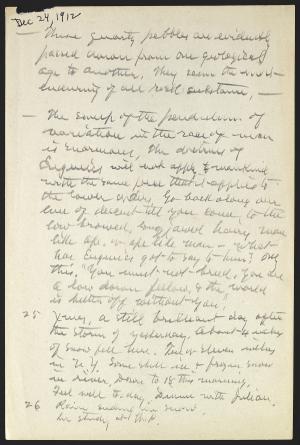 Dec 24, 1912
These quartz pebbles are evidently
passed down from one geological
age to another. They seem the most
enduring of all rock substance, —
— The sweep of the pendulum of
variation in the race of man
is enormous, The doctrine of
Eugenics will not apply to mankind
with the same force that it applies to
the lower orders. Go back along our
line of descent till you come to the
low-browed, long jawed hairy man
like ape, or ape like man — what
has Eugenics got to say to him? Only
this, "You must not breed, you are
a low down fellow, & the world
is better off without you."
25 Xmas, a still brilliant day after
the storm of yesterday. About 4 inches
of snow fell here. Ten or eleven inches
in N.Y. Some ice & frozen snow
in river, Down to 18 this morning.
Feel well to-day. Dinner with Julian.
26 Rain ending in snow.
in study at